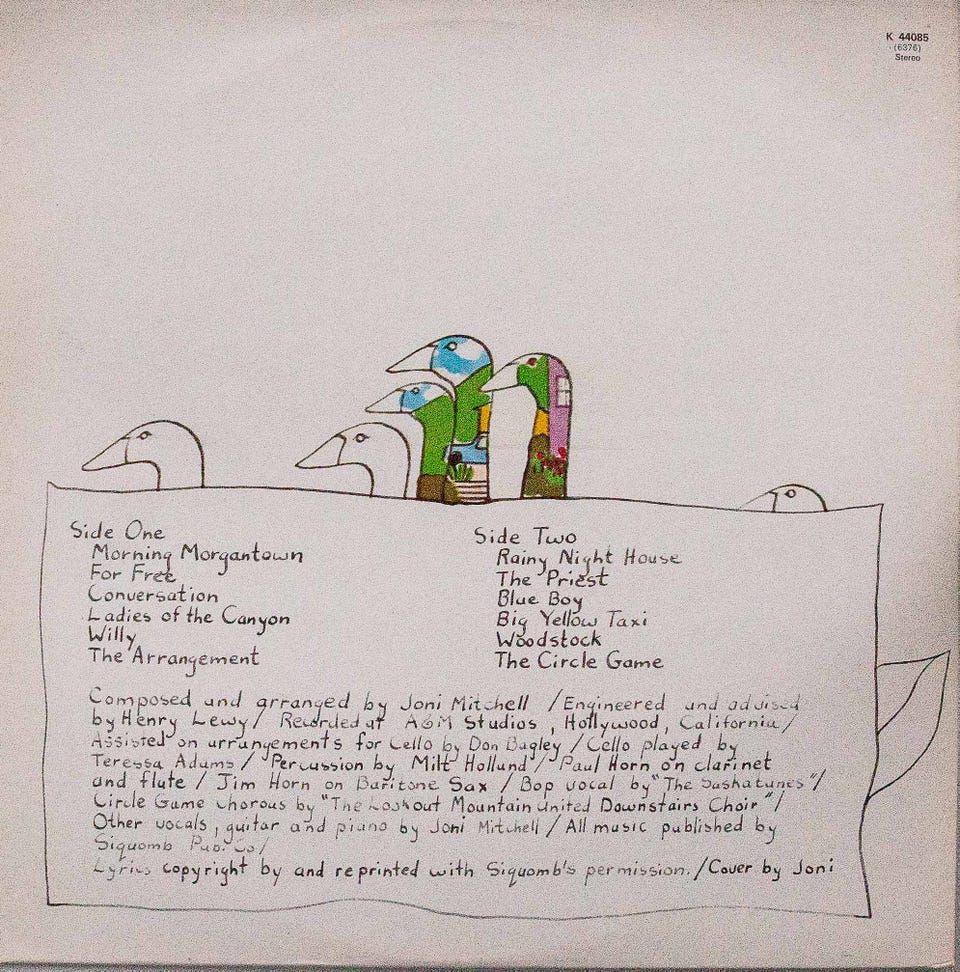 K 44085
(6376)
Stereo
Side One
Morning Morgantown
For Free
Conversation
Ladies of the Canyon
Willy
The Arrangement
Side Two
Rainy Night House
The Priest
Blue Boy
Big Yellow Taxi
Woodstock
The Circle Game
Composed and arranged by Joni Mitchell / Engineered and advised
by Henry Lewy / Recorded at A&M Studios, Hollywood, California /
Assisted on arrangements for Cello by Don Bagley / Cello played by
Teressa Adams / Percussion by Milt Holland / Paul Horn on clarinet
and flute / Jim Horn on Baritone Sax / Bop vocal by "The Saskatunes" /
Circle Game chorous by "The Lookout Mountain United Downstairs Choir" /
Other vocals, guitar and piano by Joni Mitchell / All music published by
Siquomb Pub. Co /
Lyrics copyright by and reprinted with Siquomb's permission. / Cover by Joni